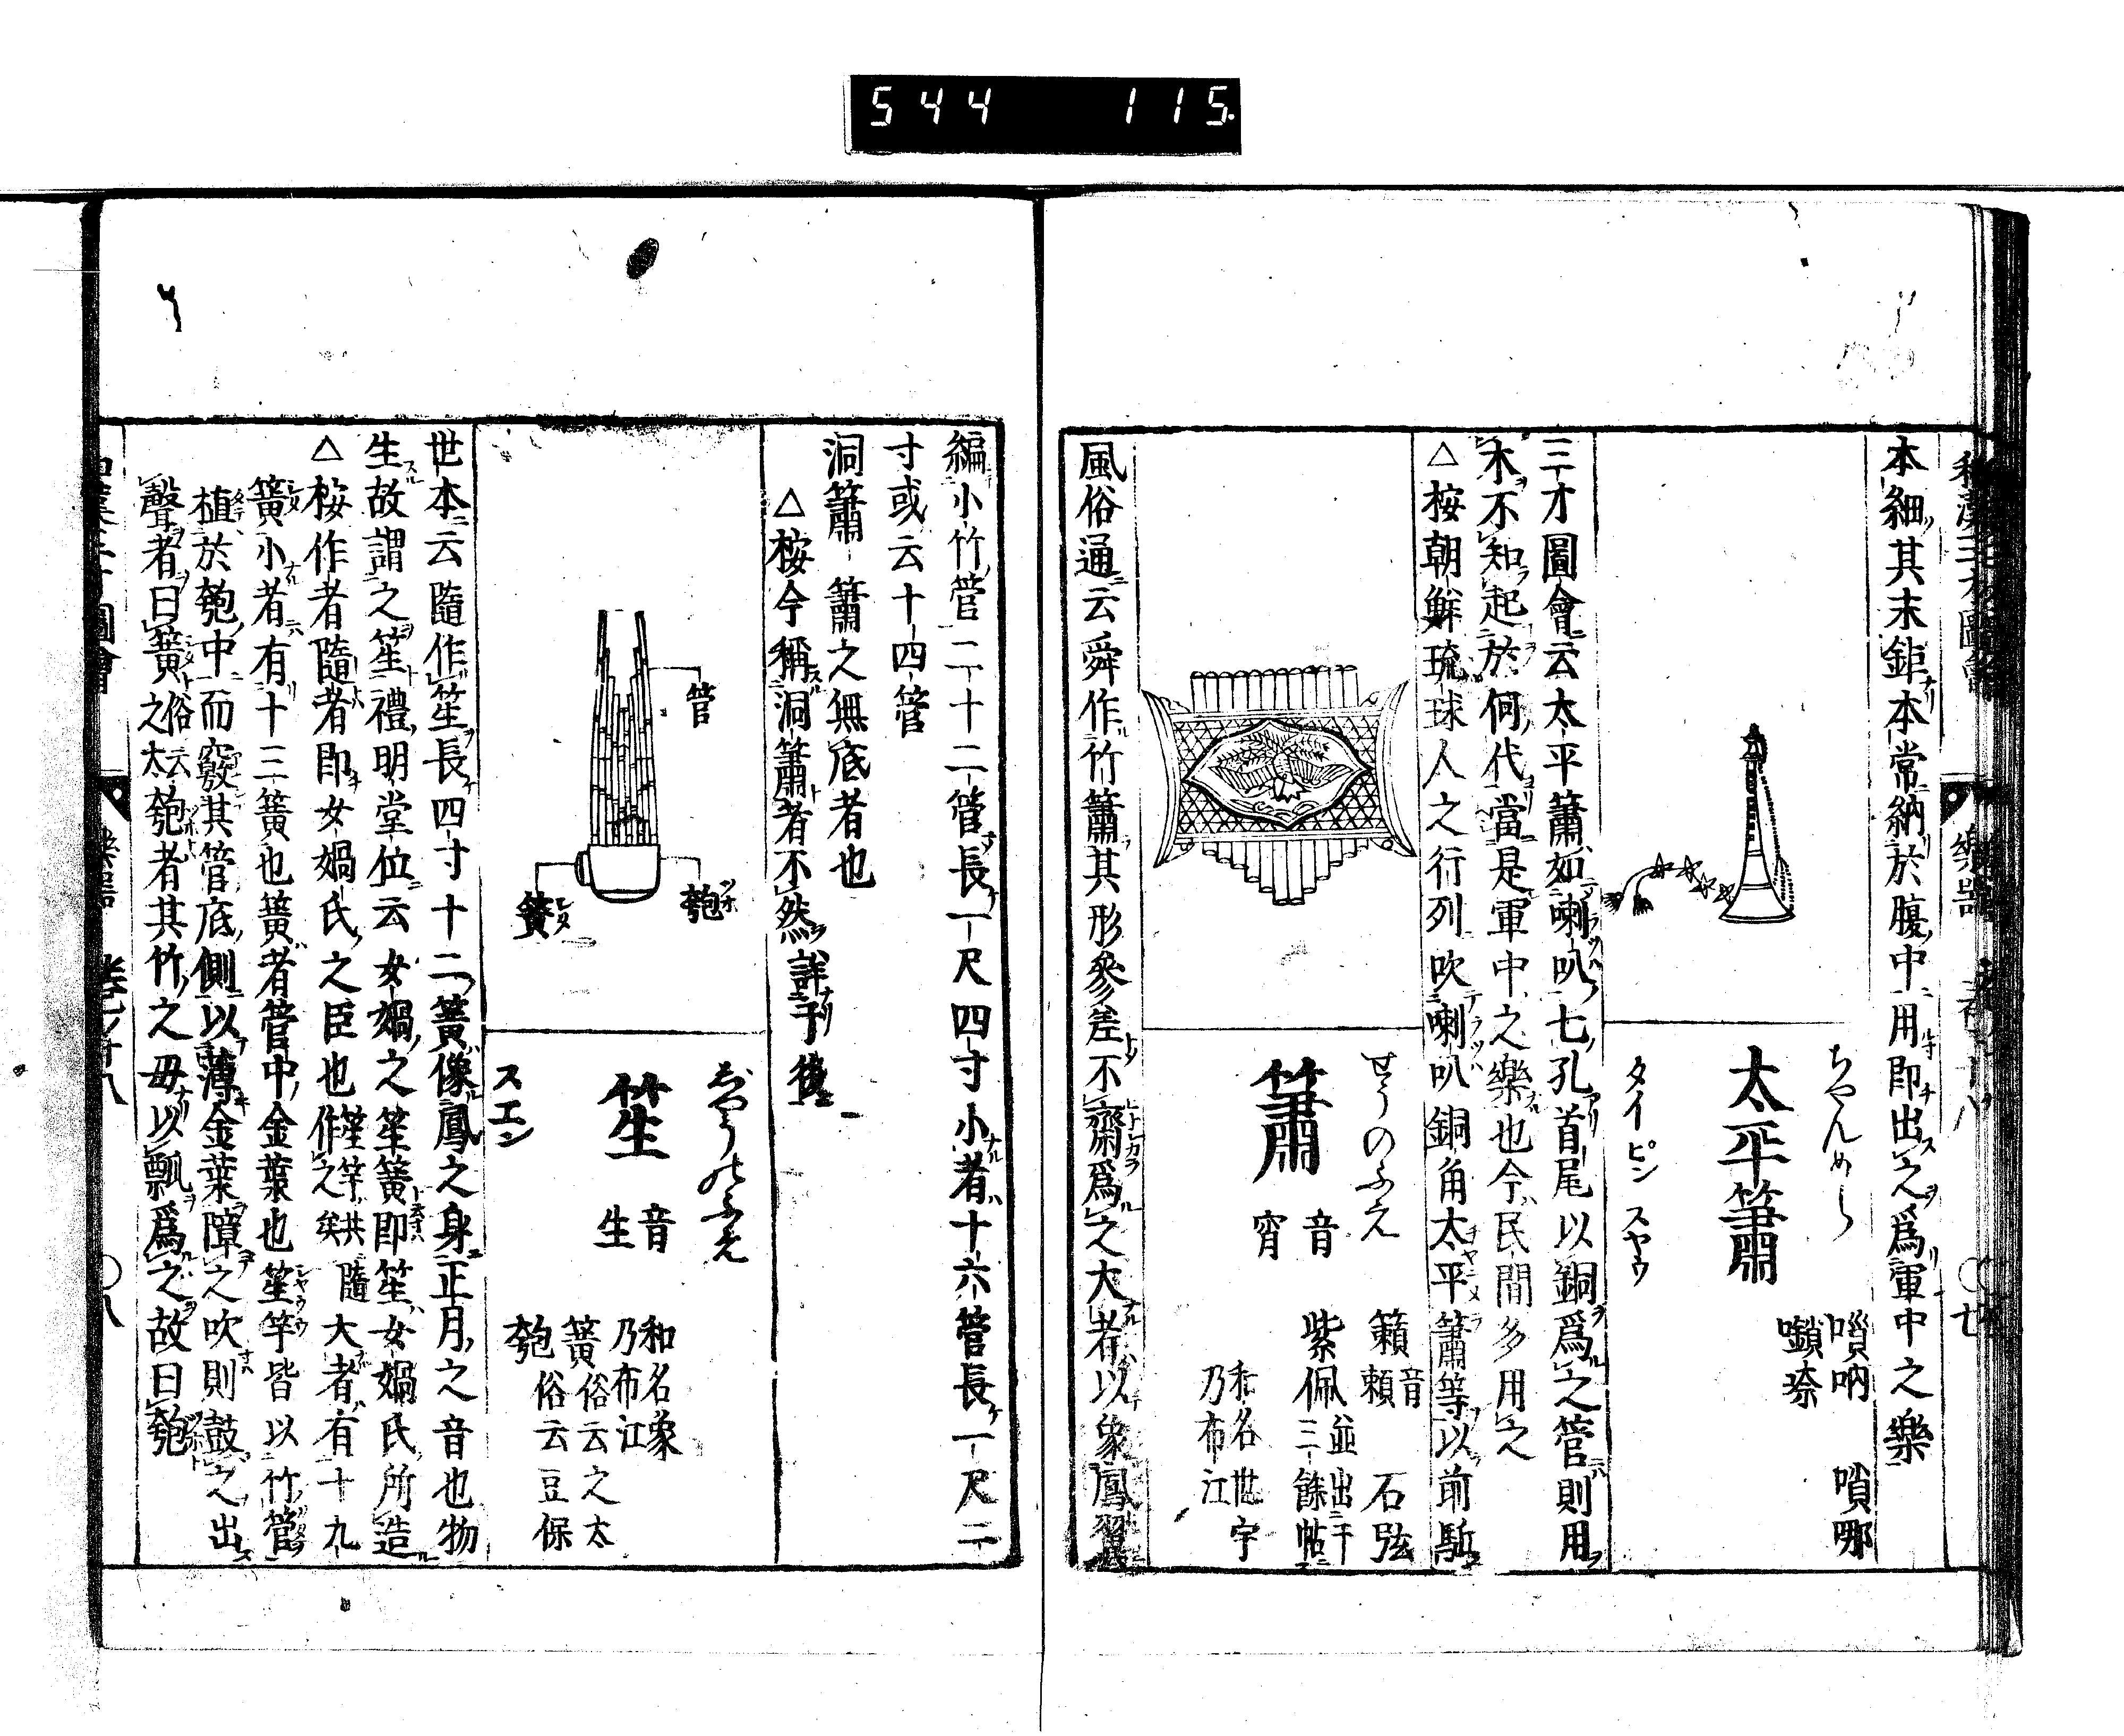 544 115.
本細其末鉅本常納於腹中用即出之爲軍中之樂
ちやんめら
太平簫
タイピン スヤウ
嗩吶 嗩哪
嚬嗏
三才圖會云太平簫如喇叭七孔首尾以銅爲之管則用
木不知起於何代當是軍中之樂也今民間多用之
△桉朝鮮琉球人之行列吹喇叭銅角太平簫等以前駈
せうのふえ
簫 音宵
籟音頼 石弦
紫佩並出于三餘帖
和名世宇乃布江
風俗通云舜作竹簫其形參差不齊爲之大者以象鳳翼
編小竹管二十二管長一尺四寸小者十六管長一尺二
寸或云十四管
洞簫 簫之無底者也
△桉今稱洞簫者不然詳于後
管
匏
簧
しやうのふえ
笙 音生
スエン
和名象乃布江
簧俗云之太
匏俗云豆保
世本云隨作笙長四寸十二簧像鳳之身正月之音也物
生故謂之笙禮明堂位云女媧之笙簧即笙女媧氏所造
△桉作者隨者即女媧氏之臣也笙竽共隨作之矣大者有十九
簧小者有十三簧也簧者管中金葉也笙竽皆以竹管
植於匏中而竅其管底側以薄金葉障之吹則鼓之出
聲者曰簧俗云之太匏者其竹之毋以瓢爲之故曰匏